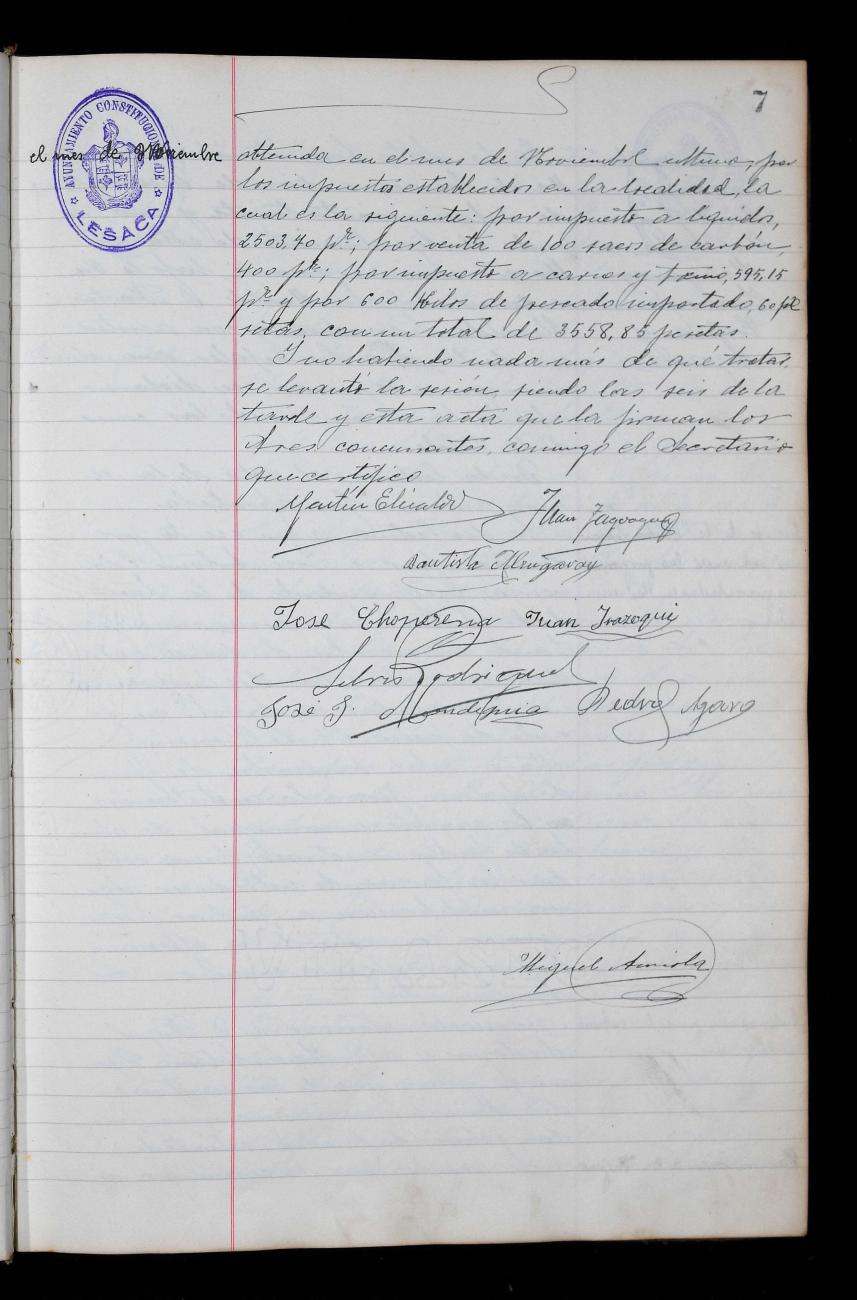 7
AYUNTAMIENTO CONSTITUCIONAL DE
LESACA
el mes de Noviembre
obtenida en el mes de Noviembre ultimo, por
los impuestos establecidos en la localidad, la
cual es la siguiente: por impuesto a liquidos,
2503,70 pts; por venta de 100 sacos de carbón,
400 pts; por impuesto a carnes y tocino, 595,15
pts y por 600 Kilos de pescado importado, 60 pe
setas, con un total de 3558,85 pesetas.
Y no habiendo nada más de que tratar,
se levantó la sesión, siendo las seis de la
tarde y esta acta que la firman los
Sres concurrentes, conmigo el Secretario
que certifico
Martín Elizalde Juan
Bautista
José Choperena Juan Irazoqui
Silvis Rodriguez
José J. Pedro
Miguel